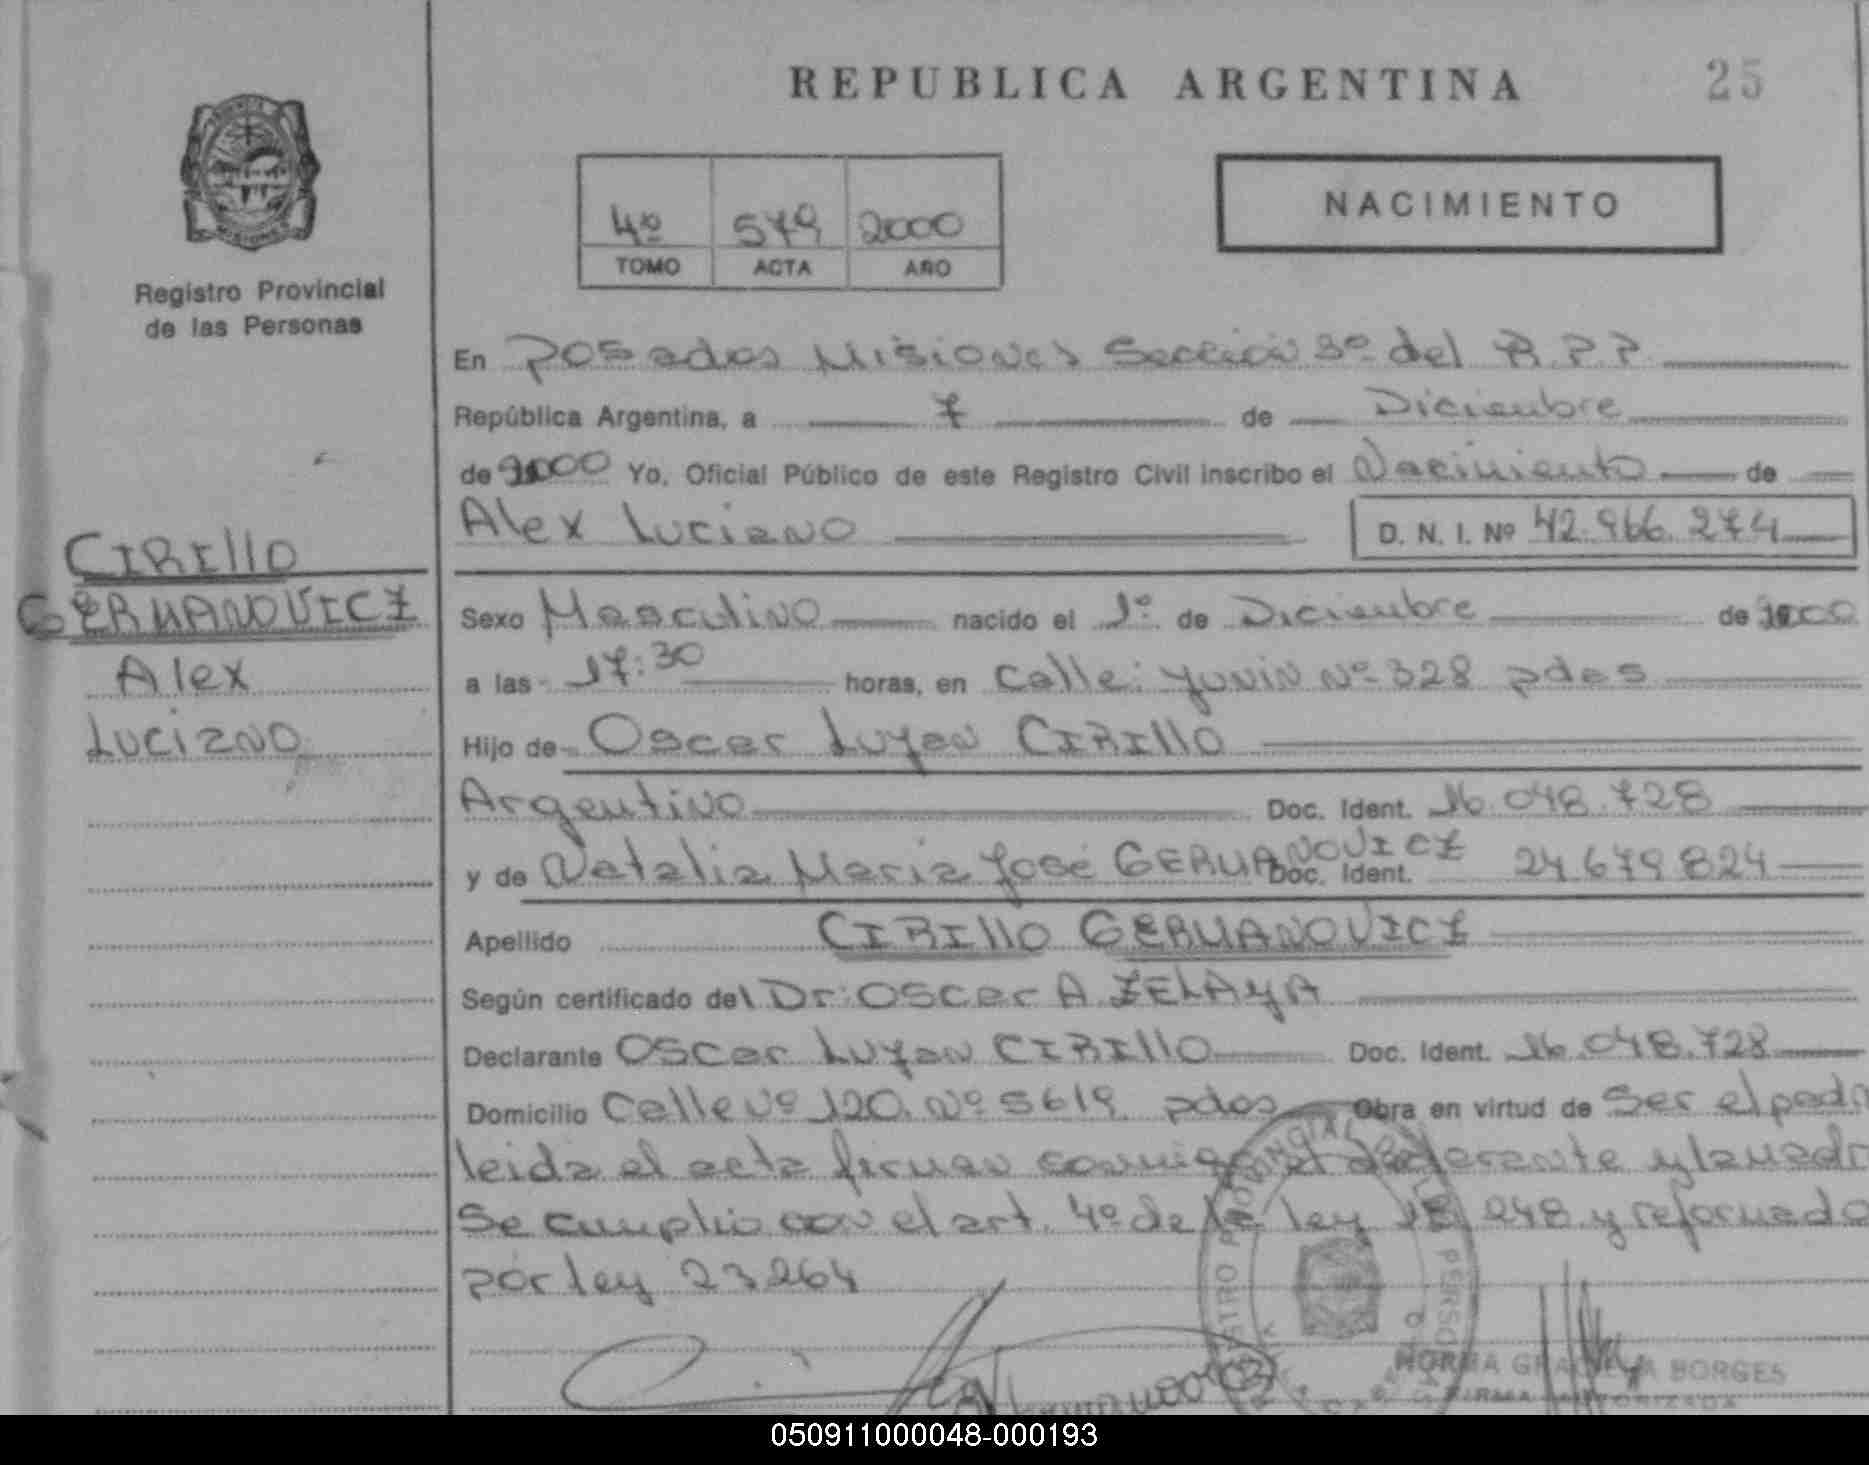 REPUBLICA ARGENTINA 25
NACIMIENTO
4º 579 2000
TOMO ACTA AÑO
Registro Provincial
de las Personas
En Posadas Misiones Sección 3º del R.P.P.
República Argentina, a 7 de Diciembre
de 2000 Yo, Oficial Público de este Registro Civil inscribo el Nacimiento de
Alex Luciano D. N. I. Nº 42.966.274
CIRILLO
GERMANOVICZ
Alex
Luciano
Sexo Masculino nacido el 1º de Diciembre de 2000
a las 17:30 horas, en Calle: Junín Nº 328 pdas
Hijo de Oscar Lujan CIRILLO
Argentino Doc. Ident. 16.048.728
y de Natalia Maria José GERMANOVICZ Doc. Ident. 24.679.824
Apellido CIRILLO GERMANOVICZ
Según certificado del Dr: Oscar A ZELAYA
Declarante Oscar Lujan CIRILLO Doc. Ident. 16.048.728
Domicilio Calle Nº 120. Nº 5619 pdas Obra en virtud de Ser el padr
leida el acta firman conmigo el declarante y la madr
Se cumplio con el art. 4º de la ley 18 248 y reformado
por ley 23264
NORMA GRACIELA BORGES
FIRMA AUTORIZADA
050911000048-000193